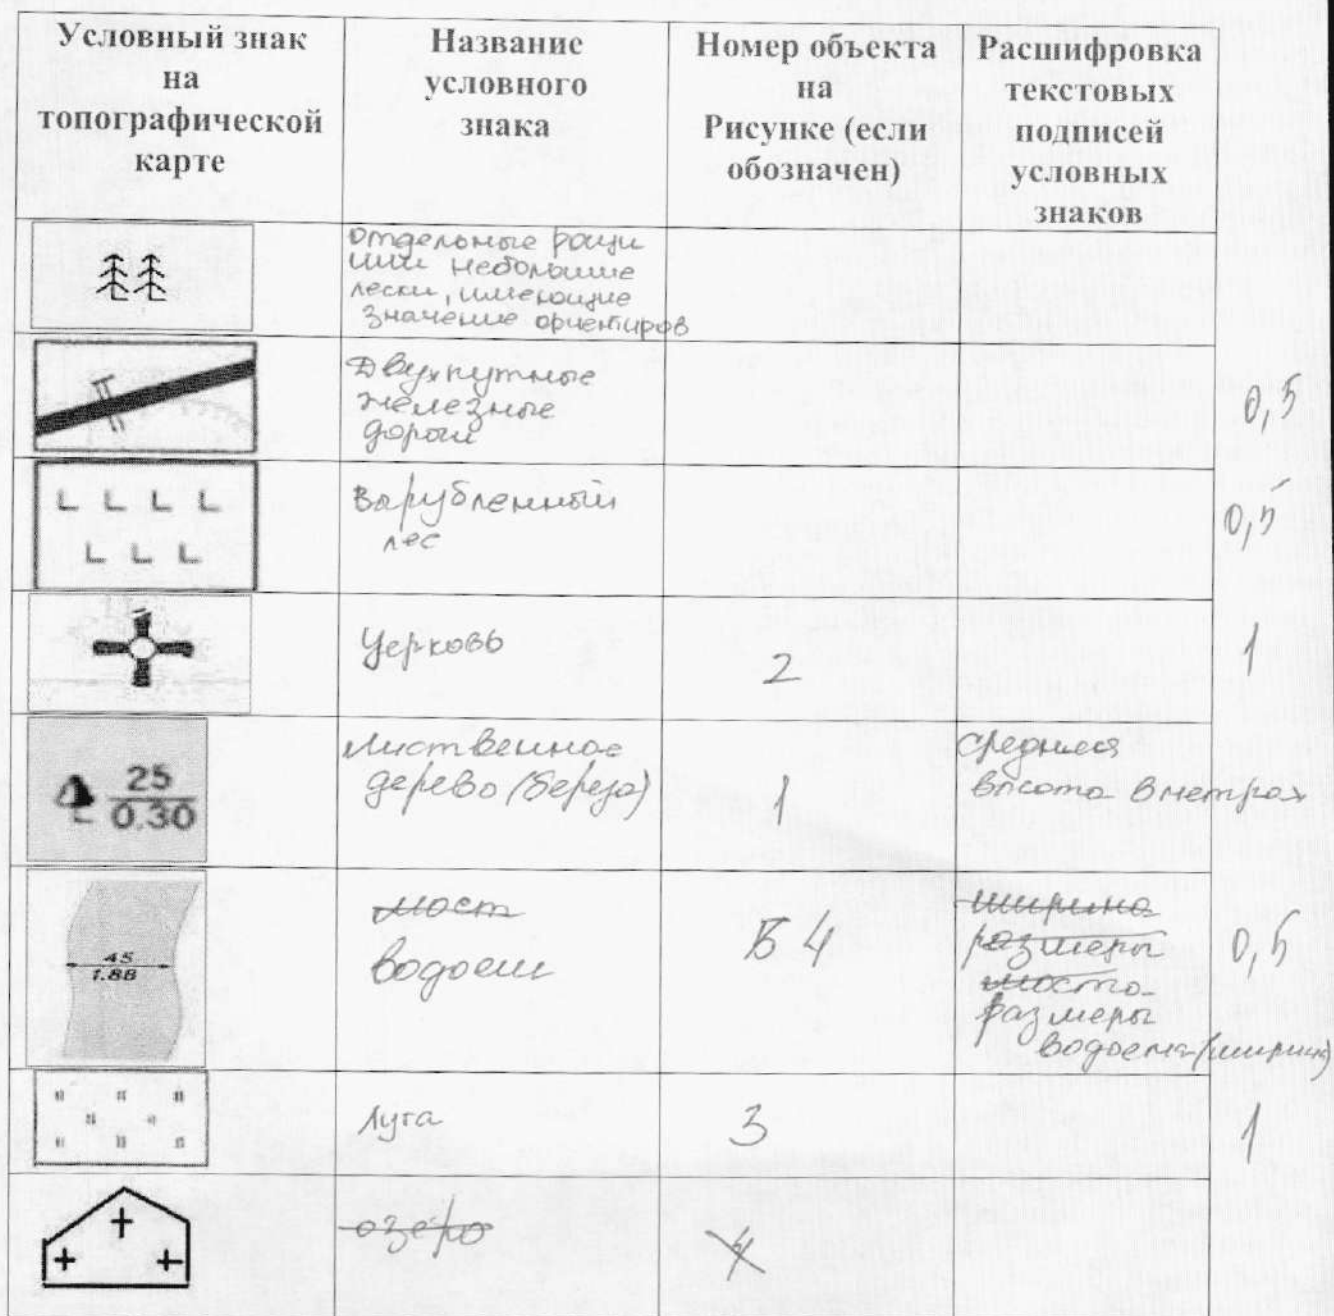 Условный знак
на
топографической
карте
Название
условного
знака
Номер объекта
на
Рисунке (если
обозначен)
Расшифровка
текстовых
подписей
условных
знаков
отдельные рощи
или небольшие
лески, имеющие
значение ориентиров
Двухпутные
железные
дороги
0,5
L L L L
L L L
вырубленный
лес
0,5
Церковь
2
1
25
0.30
Лиственное
дерево (береза)
1
средняя
высота в метрах
45
1.88
мост
водоем
Б 4
ширина
размеры
моста
размеры
водоема (ширина)
0,5
Луга
3
1
озеро
4